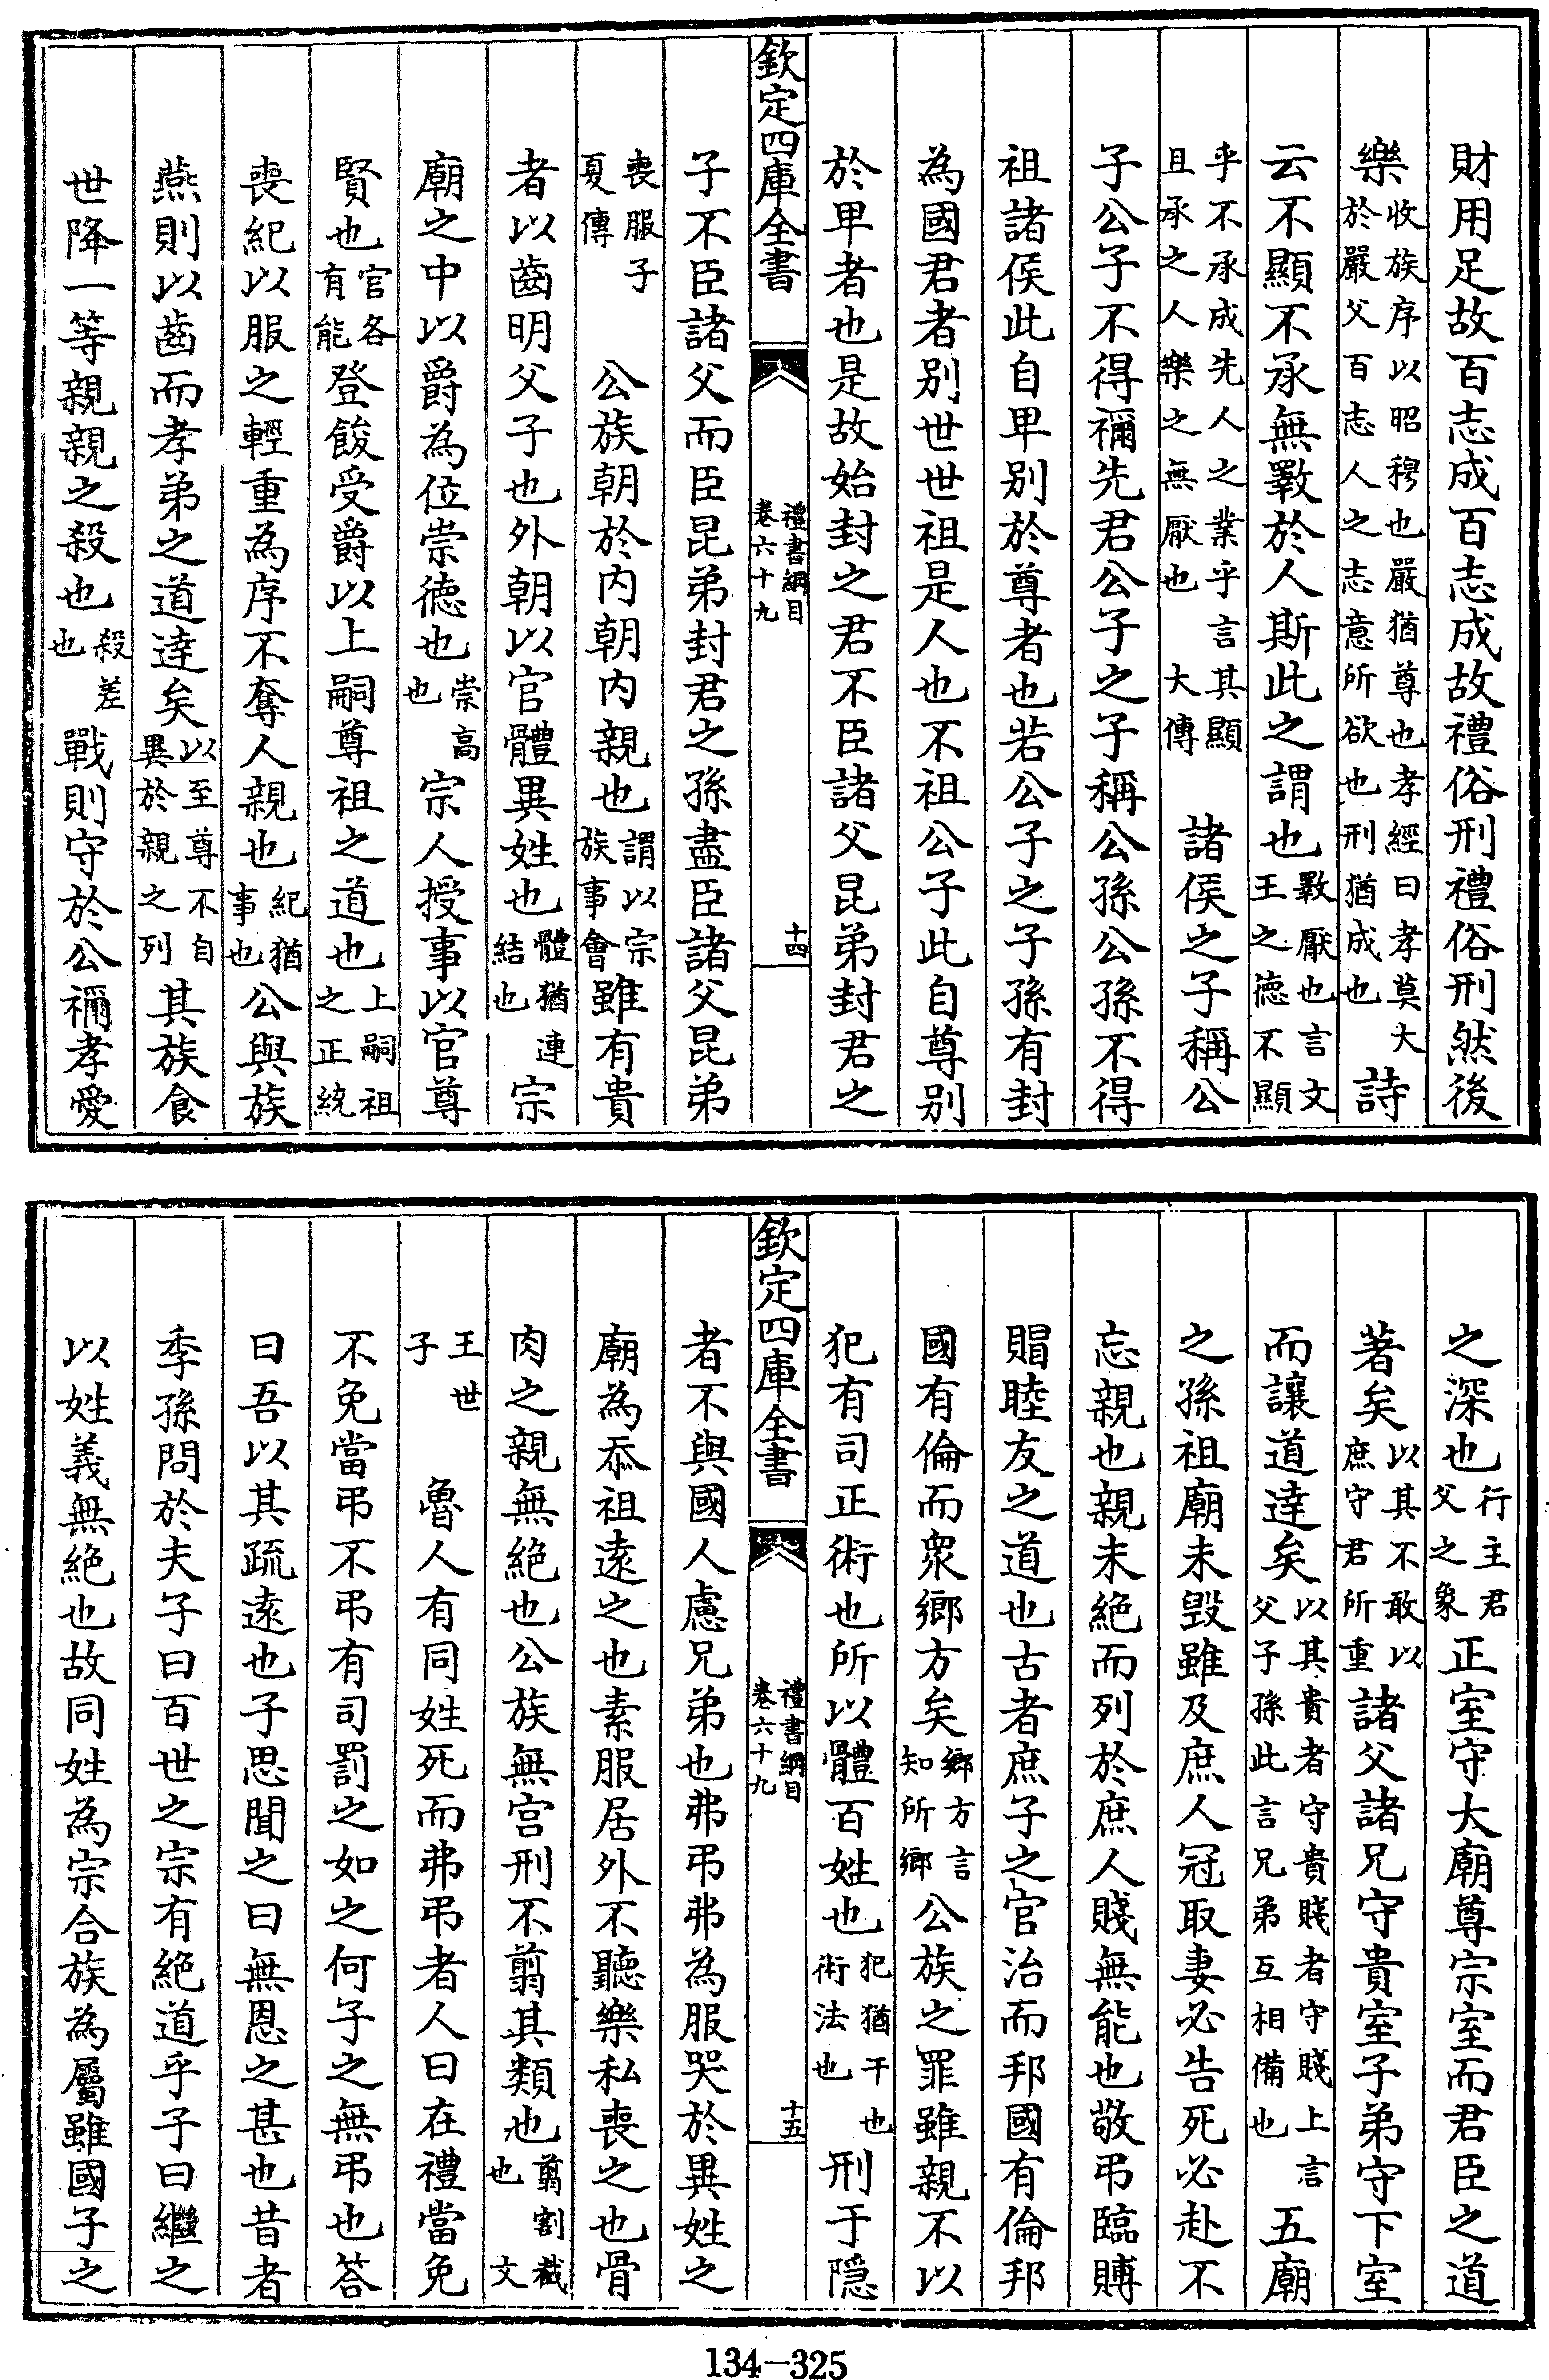 財用足故百志成百志成故禮俗刑禮俗刑然後
樂收族序以昭穆也嚴猶尊也孝經曰孝莫大於嚴父百志人之志意所欲也刑猶成也詩
云不顯不承無斁於人斯此之謂也斁厭也言文王之德不顯
乎不承成先人之業乎言其顯且承之人樂之無厭也 大傳 諸侯之子稱公
子公子不得禰先君公子之子稱公孫公孫不得
祖諸侯此自卑别於尊者也若公子之子孫有封
為國君者别世世祖是人也不祖公子此自尊别
於卑者也是故始封之君不臣諸父昆弟封君之
欽定四庫全書 禮書綱目卷六十九 十四
子不臣諸父而臣昆弟封君之孫盡臣諸父昆弟
喪服子夏傳 公族朝於内朝内親也謂以宗族事會雖有貴
者以齒明父子也外朝以官體異姓也體猶連結也宗
廟之中以爵為位崇德也崇高也宗人授事以官尊
賢也官各有能登餕受爵以上嗣尊祖之道也上嗣祖之正統
喪紀以服之輕重為序不奪人親也紀猶事也公與族
燕則以齒而孝弟之道達矣以至尊不自異於親之列其族食
世降一等親親之殺也殺差也戰則守於公禰孝愛
之深也行主君父之象正室守大廟尊宗室而君臣之道
著矣以其不敢以庶守君所重諸父諸兄守貴室子弟守下室
而讓道達矣以其貴者守貴賤者守賤上言父子孫此言兄弟互相備也五廟
之孫祖廟未毀雖及庶人冠取妻必告死必赴不
忘親也親未絶而列於庶人賤無能也敬弔臨賻
賵睦友之道也古者庶子之官治而邦國有倫邦
國有倫而衆鄉方矣鄉方言知所鄉公族之罪雖親不以
犯有司正術也所以體百姓也犯猶干也術法也刑于隠
欽定四庫全書 禮書綱目卷六十九 十五
者不與國人慮兄弟也弗弔弗為服哭於異姓之
廟為忝祖逺之也素服居外不聽樂私喪之也骨
肉之親無絶也公族無宫刑不翦其類也翦割截也 文
王世子 魯人有同姓死而弗弔者人曰在禮當免
不免當弔不弔有司罰之如之何子之無弔也答
曰吾以其疏逺也子思聞之曰無恩之甚也昔者
季孫問於夫子曰百世之宗有絶道乎子曰繼之
以姓義無絶也故同姓為宗合族為屬雖國子之
134-325